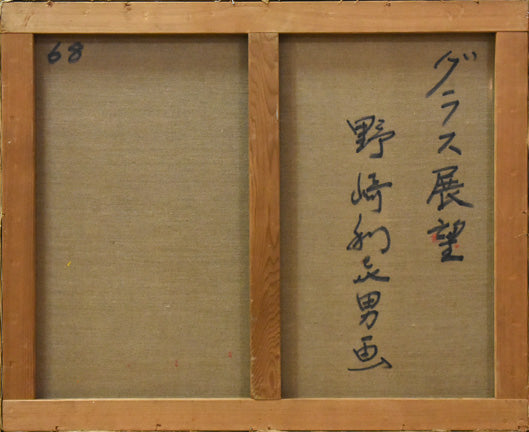 グラス展望
野崎利喜男画
68